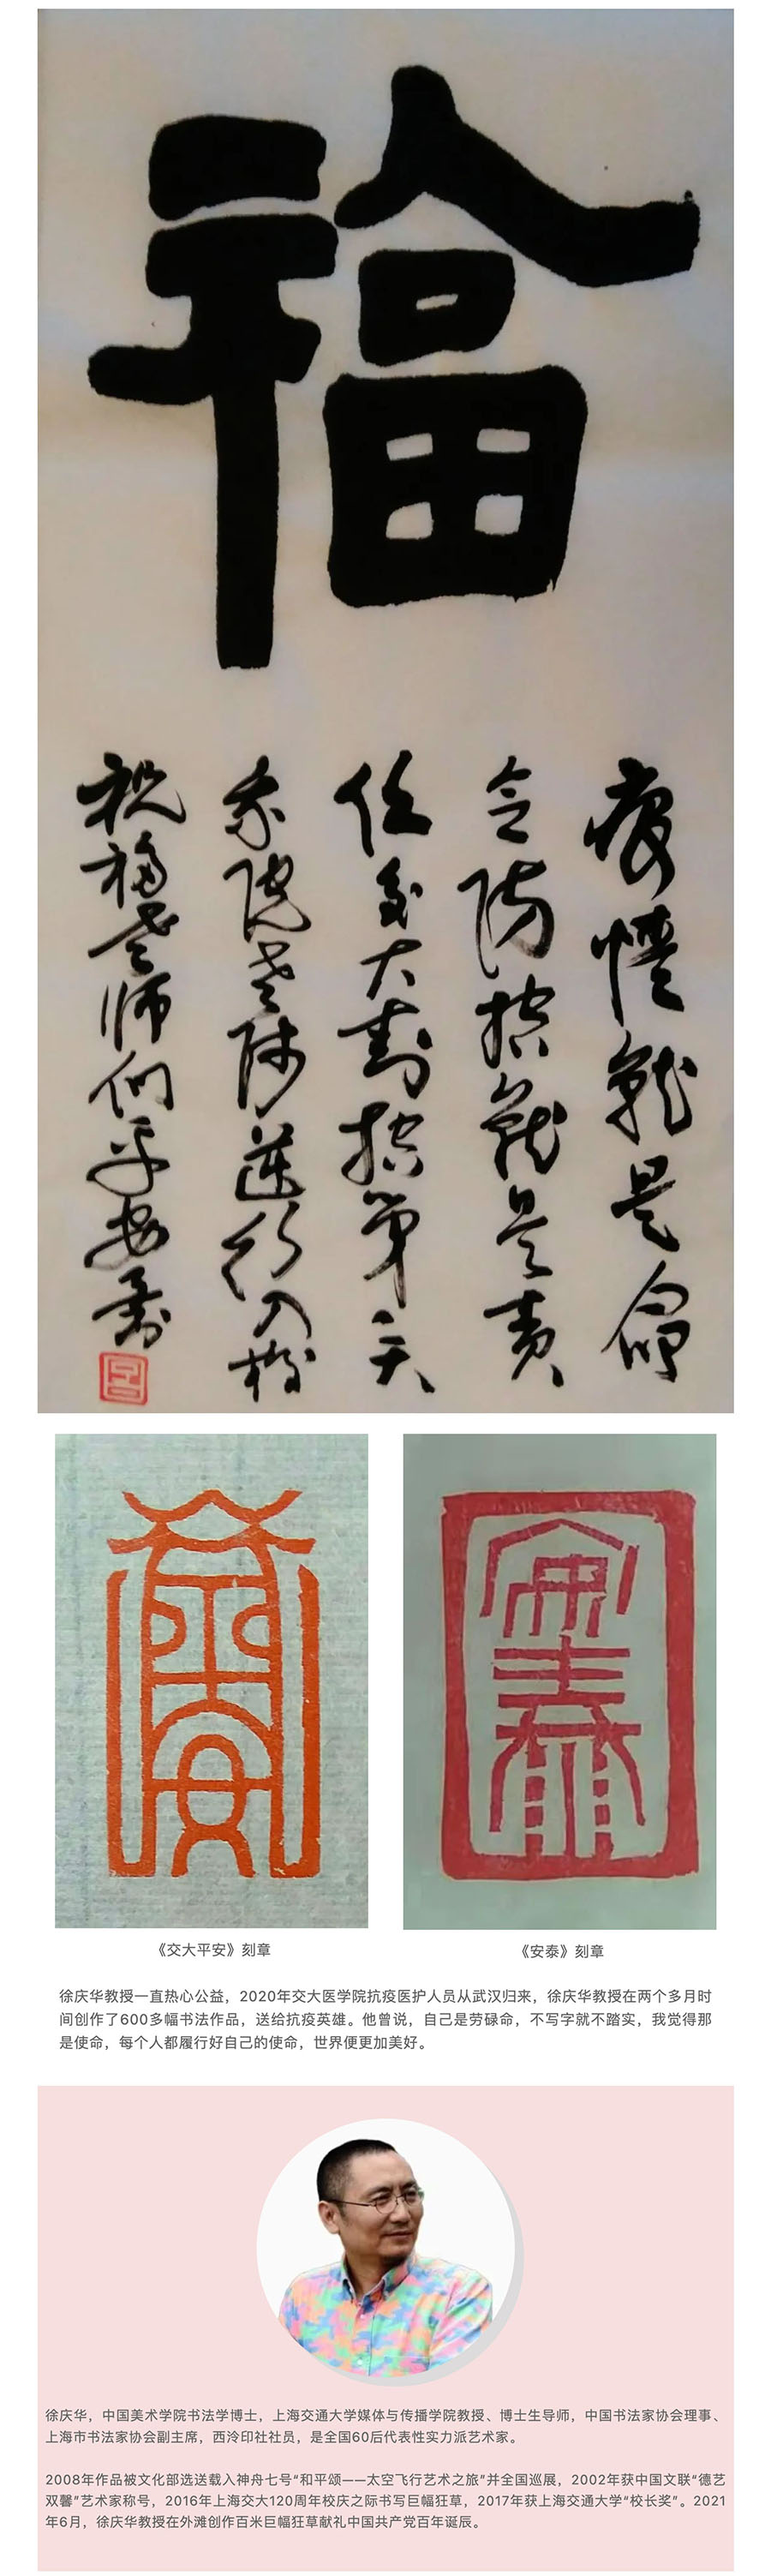 福
疫情就是命
令防控就是责
任交大封控第一天
院老师逆行入校
祝福老师们平安
交大平安
安泰
《交大平安》刻章
《安泰》刻章
徐庆华教授一直热心公益，2020年交大医学院抗疫医护人员从武汉归来，徐庆华教授在两个多月时
间创作了600多幅书法作品，送给抗疫英雄。他曾说，自己是劳碌命，不写字就不踏实，我觉得那
是使命，每个人都履行好自己的使命，世界便更加美好。
徐庆华，中国美术学院书法学博士，上海交通大学媒体与传播学院教授、博士生导师，中国书法家协会理事、
上海市书法家协会副主席，西泠印社社员，是全国60后代表性实力派艺术家。
2008年作品被文化部选送载入神舟七号“和平颂——太空飞行艺术之旅”并全国巡展，2002年获中国文联“德艺
双馨”艺术家称号，2016年上海交大120周年校庆之际书写巨幅狂草，2017年获上海交通大学“校长奖”。2021
年6月，徐庆华教授在外滩创作百米巨幅狂草献礼中国共产党百年诞辰。